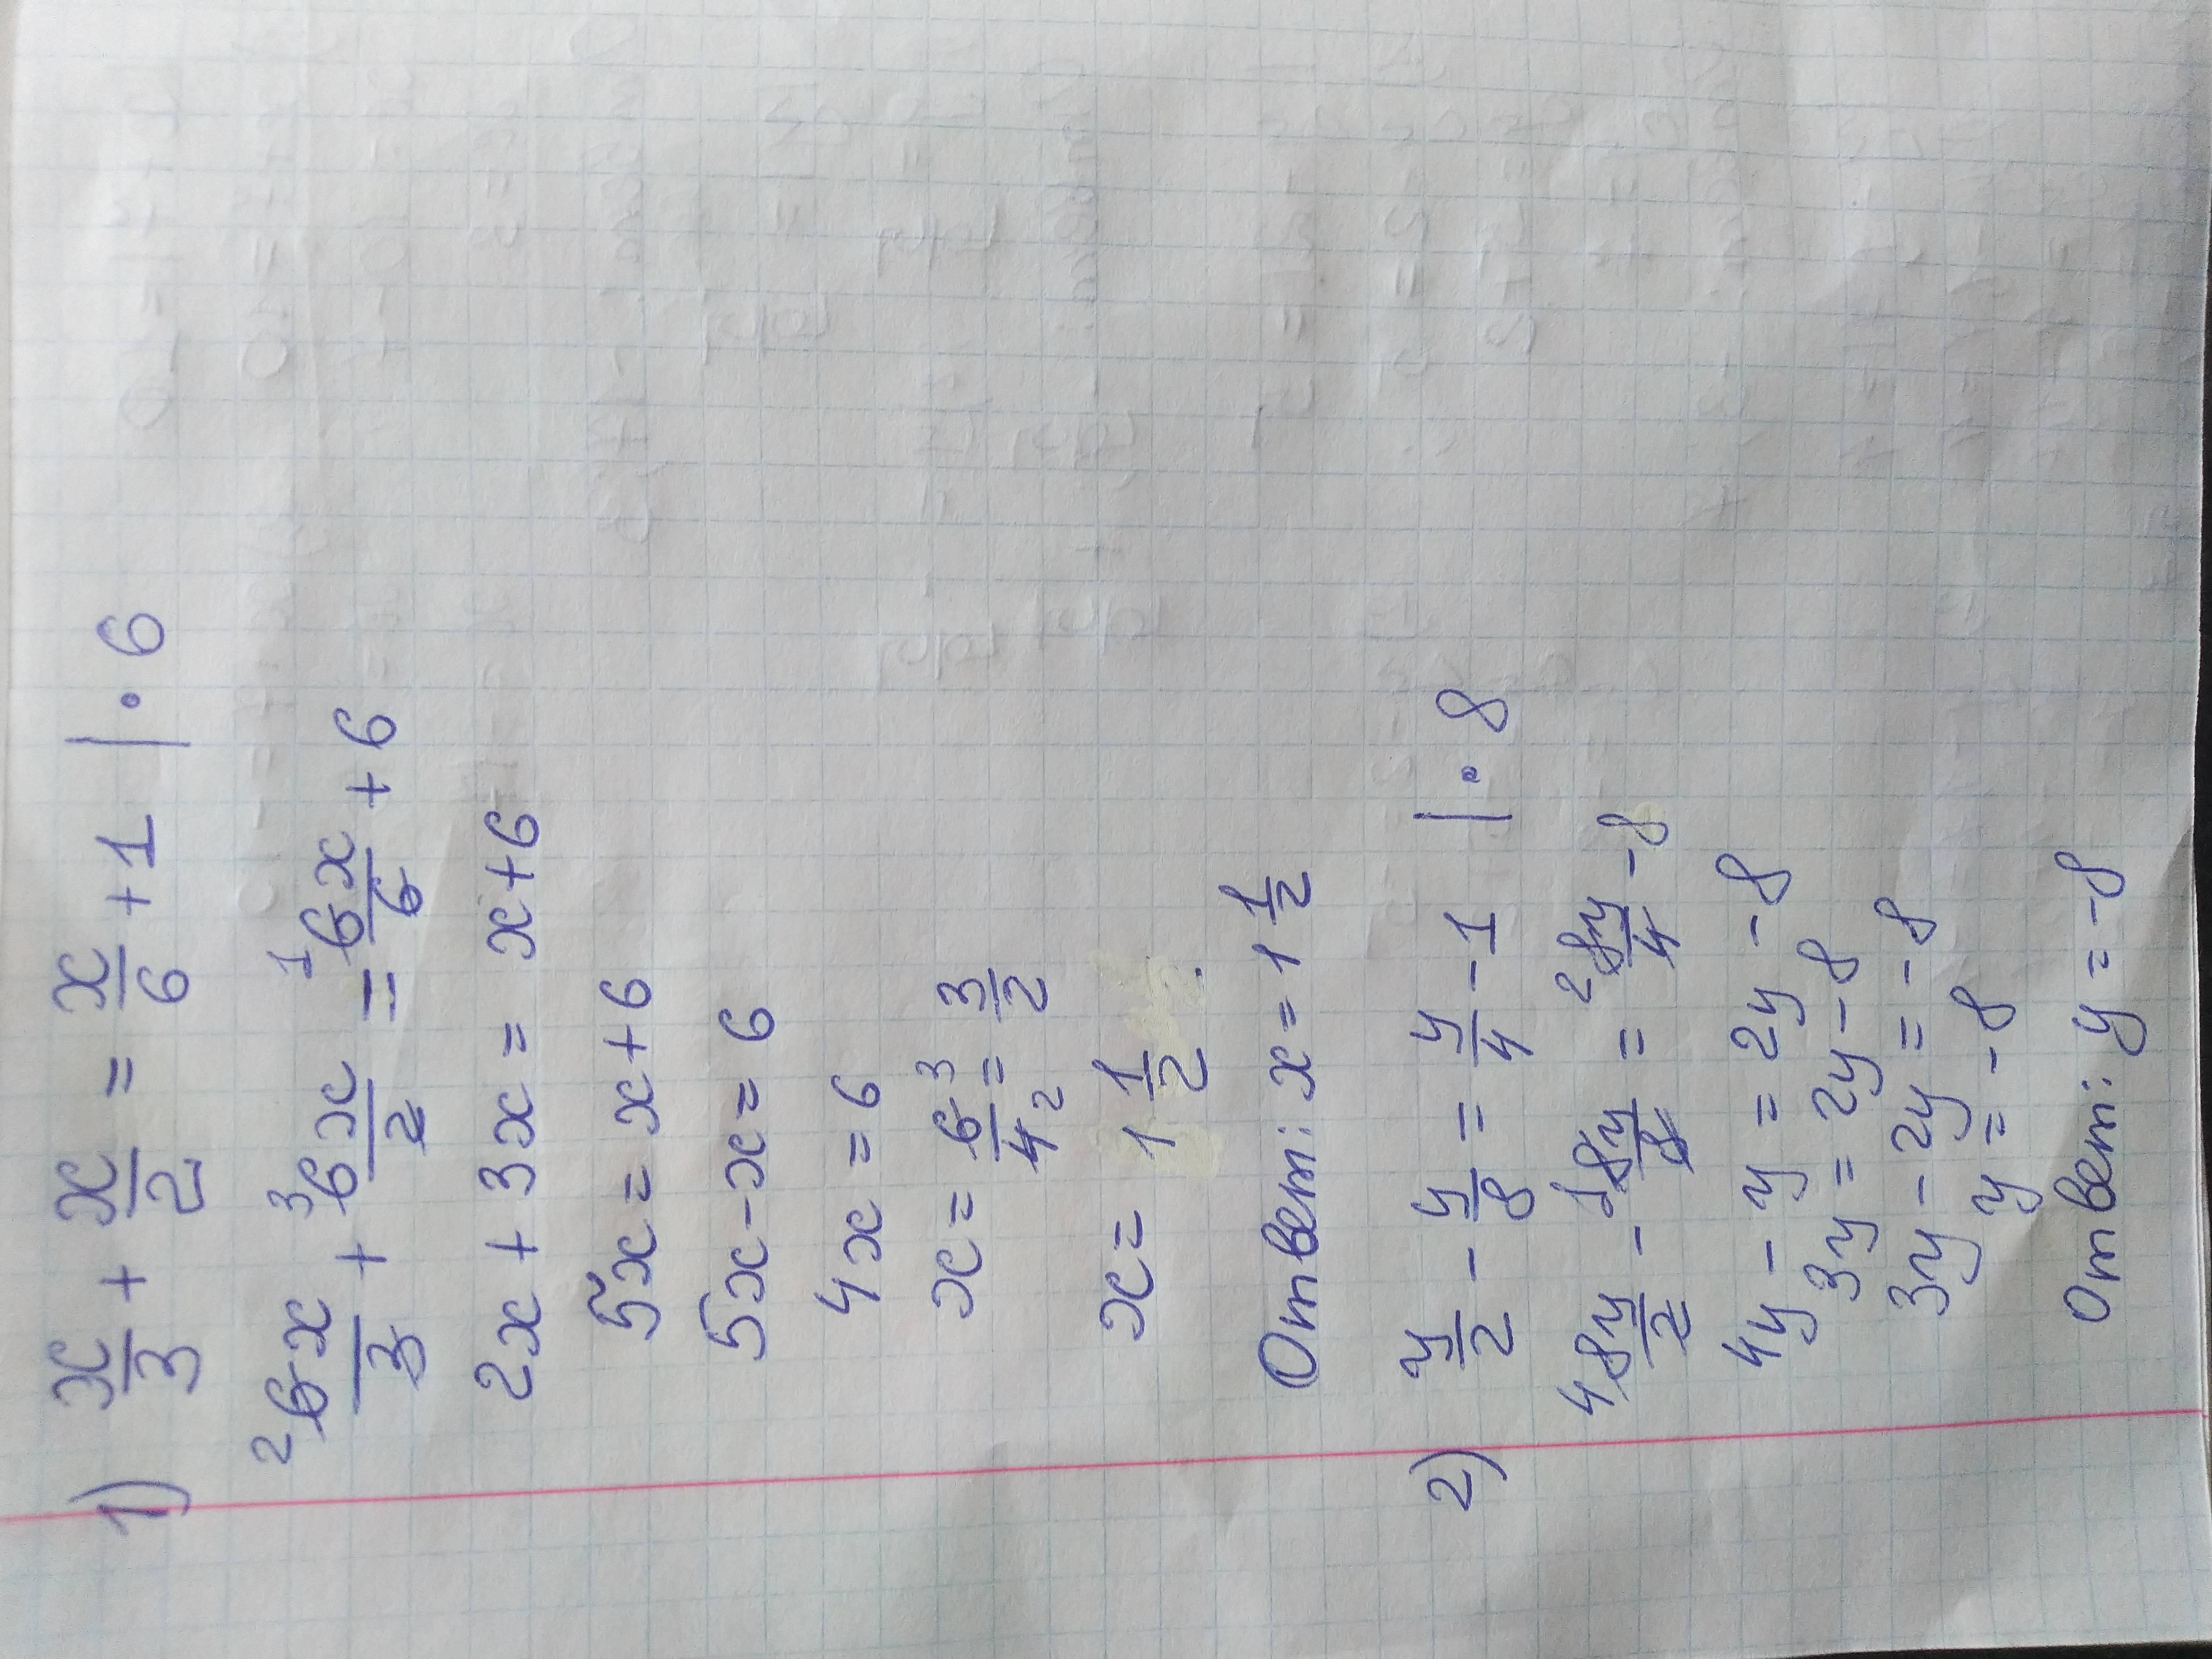 1) x/3 + x/2 = x/6 + 1 | · 6
²6x/3 + ³6x/2 = ¹6x/6 + 6
2x + 3x = x + 6
5x = x + 6
5x - x = 6
4x = 6
x = 6³/4₂ = 3/2
x = 1 1/2
Ответ: x = 1 1/2
2) y/2 - y/8 = y/4 - 1 | · 8
⁴8y/2 - ¹8y/8 = ²8y/4 - 8
4y - y = 2y - 8
3y = 2y - 8
3y - 2y = -8
y = -8
Ответ: y = -8